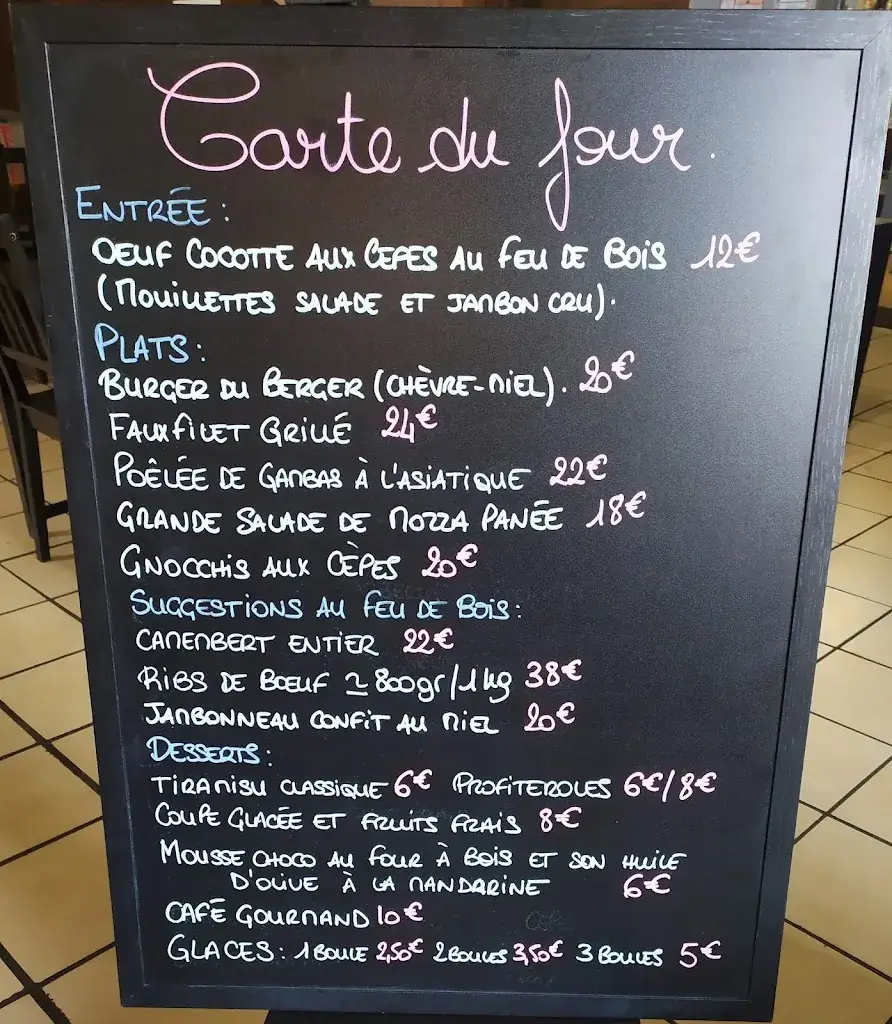 Carte du Jour.
ENTRÉE :
OEUF COCOTTE AUX CEPES AU FEU DE BOIS 12€
(MOUILLETTES SALADE ET JAMBON CRU).
PLATS :
BURGER DU BERGER (CHÈVRE-MIEL). 20€
FAUX FILET GRILLÉ 24€
POÊLÉE DE GAMBAS À L'ASIATIQUE 22€
GRANDE SALADE DE MOZZA PANÉE 18€
GNOCCHIS AUX CÈPES 20€
SUGGESTIONS AU FEU DE BOIS :
CAMEMBERT ENTIER 22€
RIBS DE BOEUF ≃ 800gr/1kg 38€
JAMBONNEAU CONFIT AU MIEL 20€
DESSERTS :
TIRAMISU CLASSIQUE 6€ PROFITEROLES 6€/8€
COUPE GLACÉE ET FRUITS FRAIS 8€
MOUSSE CHOCO AU FOUR À BOIS ET SON HUILE
D'OLIVE À LA MANDARINE 6€
CAFÉ GOURMAND 10€
GLACES : 1 BOULE 2,50€ 2 BOULES 3,50€ 3 BOULES 5€